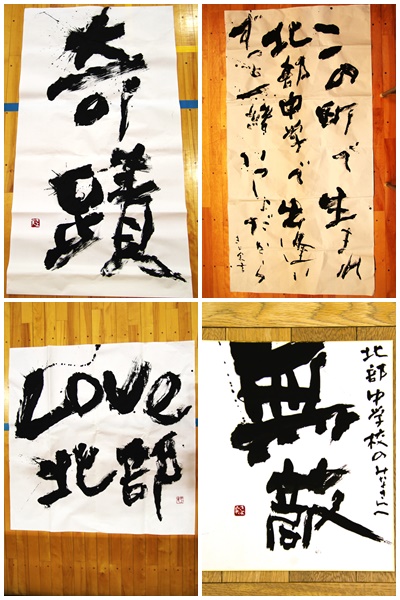 奇蹟
この町で生まれ
北部中学で出逢い
ずっと一緒 いっしょだから
Love
北部
北部中学校のみなさんへ
無敵